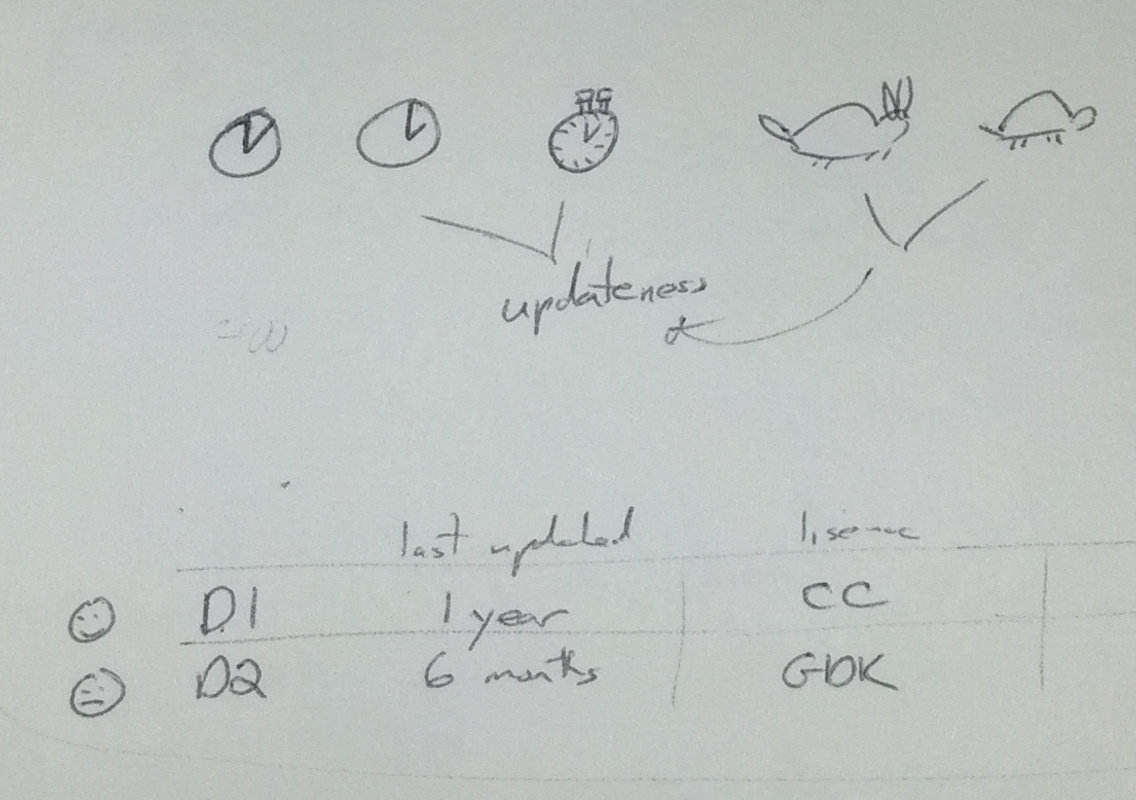 updateness
last updated lisence
D1 1 year CC
D2 6 months GDK